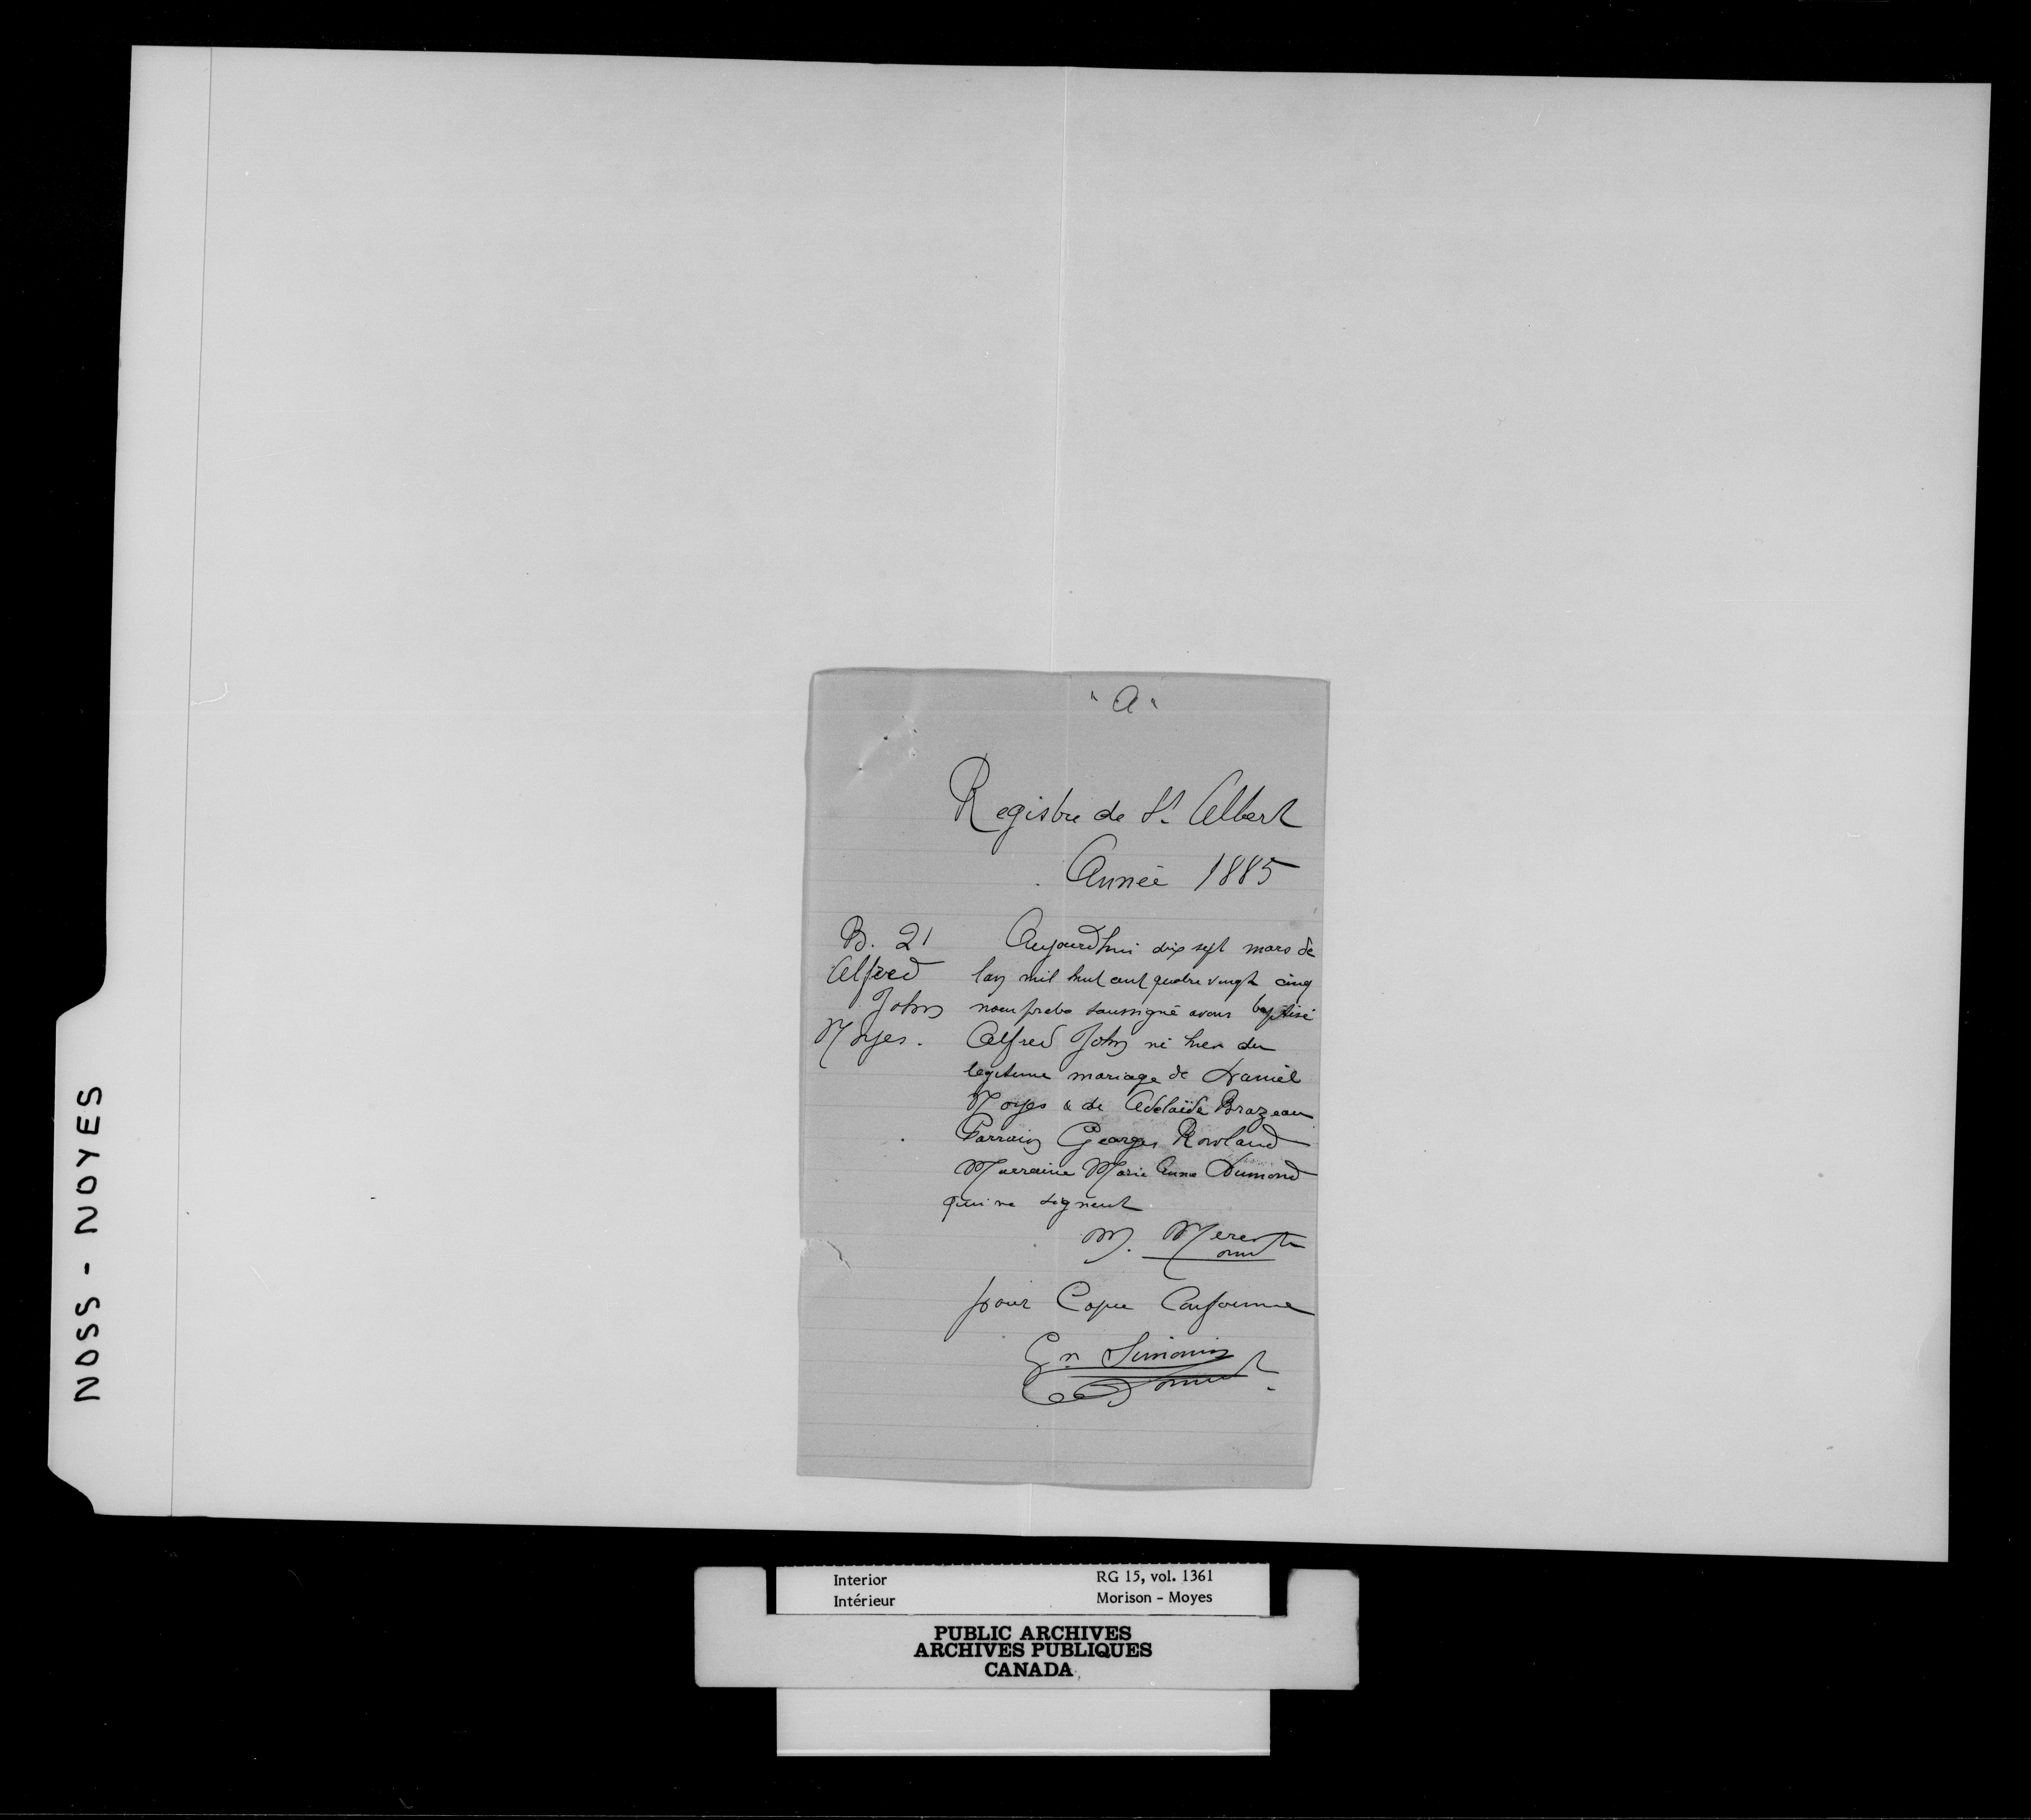 "A"
Registre de St Albert
Année 1885
B. 21
Alfred
John
Noyes.
Aujourd'hui dix sept mars de
l'an mil huit cent quatre vingt cinq
nous prêtre soussigné avons baptisé
Alfred John né hier du
legitime mariage de Daniel
Noyes & de Adelaïde Brazeau
Parrain Georges Rowland
Marraine Marie Anne Dumond
qui ne signent
M. Merer
omi
pour Copie Conforme
Gn Simonin
omi
NOSS - NOYES
Interior
Intérieur
RG 15, vol. 1361
Morison - Moyes
PUBLIC ARCHIVES
ARCHIVES PUBLIQUES
CANADA